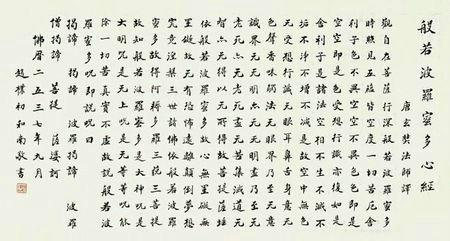 般若波羅蜜多心經
唐玄奘法師譯
觀自在菩薩行深般若波羅蜜多
時照見五蘊皆空度一切苦厄舍
利子色不異空空不異色色即是
空空即是色受想行識亦復如是
舍利子是諸法空相不生不滅不
垢不淨不增不減是故空中無色
无受想行識无眼耳鼻舌身意无
色聲香味觸法无眼界乃至无意
識界无无明亦无无明盡乃至无
老死亦无老死盡无苦集滅道无
智亦无得以无所得故菩提薩埵
依般若波羅蜜多故心无罣礙无
罣礙故无有恐怖遠離顛倒夢想
究竟涅槃三世諸佛依般若波羅
蜜多故得阿耨多羅三藐三菩提
故知般若波羅蜜多是大神咒是
大明咒是无上咒是无等等咒能
除一切苦真實不虛故說般若波
羅蜜多咒即說咒曰
揭諦 揭諦 波羅揭諦 波羅
僧揭諦 菩提 薩婆訶
佛曆二五三七年九月
趙樸初和南敬書